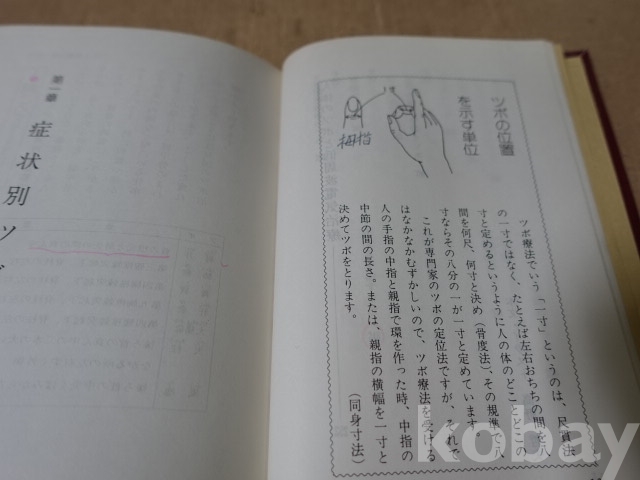 ツボの位置
を示す単位
拇指
ツボ療法でいう「一寸」というのは、尺貫法
の一寸ではなく、たとえば左右おちちの間を八
寸と定めるというように人の体のどことどこの
間を何尺、何寸と決め（骨度法）、その規準で八
寸ならその八分の一が一寸と定めています。
これが専門家のツボの定位法ですが、それで
はなかなかむずかしいので、ツボ療法を受ける
人の手指の中指と親指で環を作った時、中指の
中節の間の長さ。または、親指の横幅を一寸と
決めてツボをとります。
（同身寸法）
第一章
症状別ツボ
kobay